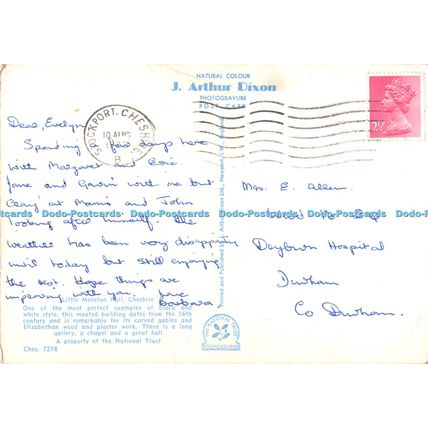 NATURAL COLOUR
J. Arthur Dixon
PHOTOGRAVURE
POST CARD
STOCKPORT. CHESHIRE
10 AUG
B
Dear Evelyn,
Spending a few days here
with Margaret and Eric
Jane and Gavin with me but
Craig at Mam's and John
looking after himself. The
weather has been very disappointing
until today but still enjoying
the rest. Hope things are
improving with you, love
Barbara
Little Moreton Hall, Cheshire
One of the most perfect examples of black and
white style, this moated building dates from the 16th
century and is remarkable for its carved gables and
Elizabethan wood and plaster work. There is a long
gallery, a chapel and a great hall
A property of the National Trust
Ches. 7278
Printed and Published by J. Arthur Dixon Ltd., Newport, I.W., England
THE NATIONAL TRUST
FOUNDED 1895
2½P
Mrs. E. Allen.
Dryburn Hospital
Durham
Co Durham.
Dodo-Postcards Dodo-Postcards Dodo-Postcards Dodo-Postcards Dodo-Postcards